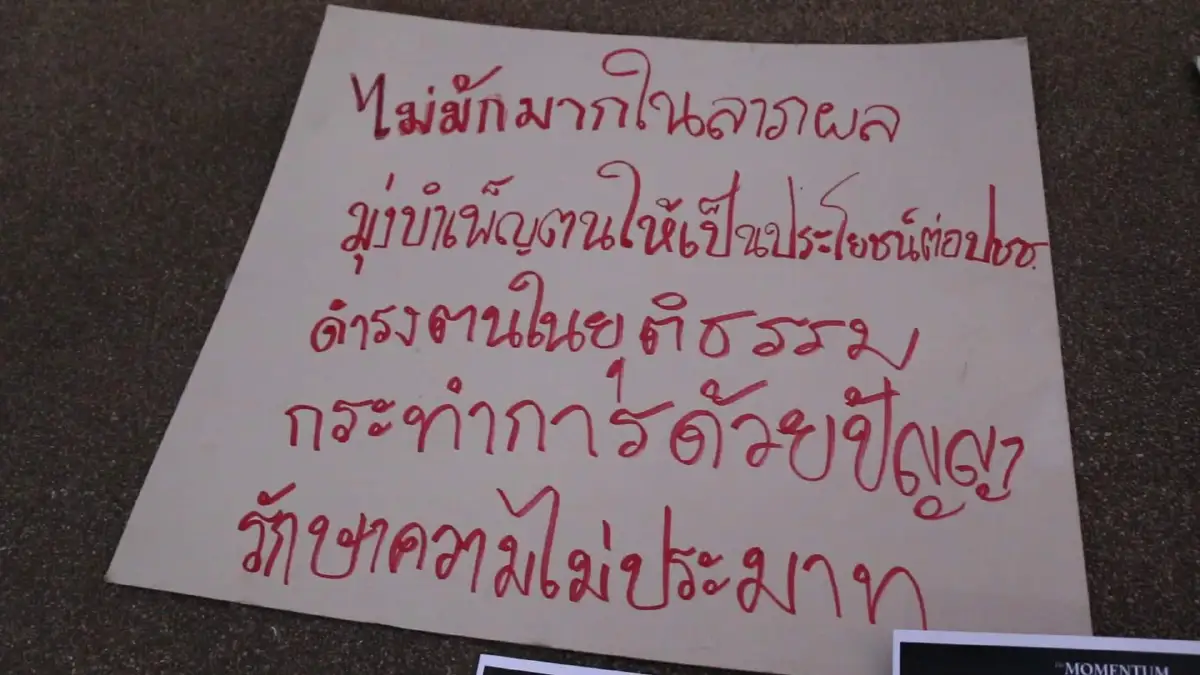 ไม่มักมากในลาภผล
มุ่งบำเพ็ญตนให้เป็นประโยชน์ต่อปชช.
ดำรงตนในยุติธรรม
กระทำการด้วยปัญญา
รักษาความไม่ประมาท
MOMENTUM